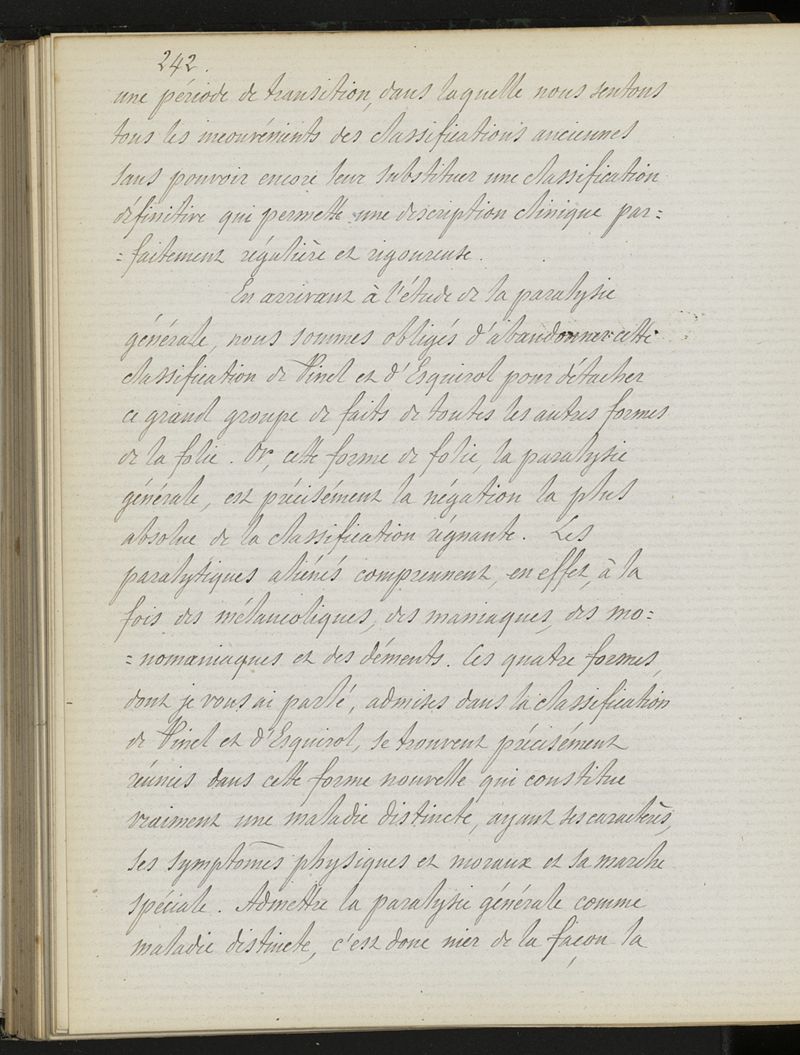 242.
une période de transition, dans laquelle nous sentons
tous les inconvénients des classifications anciennes
sans pouvoir encore leur substituer une classification
définitive qui permette une description clinique par=
=faitement régulière et rigoureuse.
En arrivant à l'étude de la paralysie
générale, nous sommes obligés d'abandonner cette
classification de Pinel et d'Esquirol pour détacher
ce grand groupe de faits de toutes les autres formes
de la folie. Or, cette forme de folie, la paralysie
générale, est précisément la négation la plus
absolue de la classification régnante. Les
paralytiques aliénés comprennent, en effet, à la
fois des mélancoliques, des maniaques, des mo=
=nomaniaques et des déments. Ces quatre formes,
dont je vous ai parlé, admises dans la classification
de Pinel et d'Esquirol, se trouvent précisément
réunies dans cette forme nouvelle qui constitue
vraiment une maladie distincte, ayant ses caractères,
ses symptômes physiques et moraux et sa marche
spéciale. Admettre la paralysie générale comme
maladie distincte, c'est donc nier de la façon la